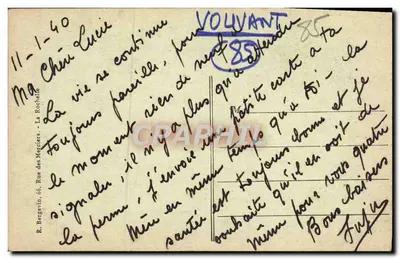 11-1-40
VOUVANT
(85)
85
Ma Chère Lucie
La vie se continue
toujours pareille, pour
le moment rien de neuf à
signaler, il n'y a plus qu'a attendre
la perme, J'envoie une petite carte à ta
Mère en même temps qu'à toi. la
santé est toujours bonne et je
souhaite qu'il en soit de
même pour vous quatre
Bons baisers
R. Bergevin, 66, Rue des Merciers - La Rochelle
CPARAMA